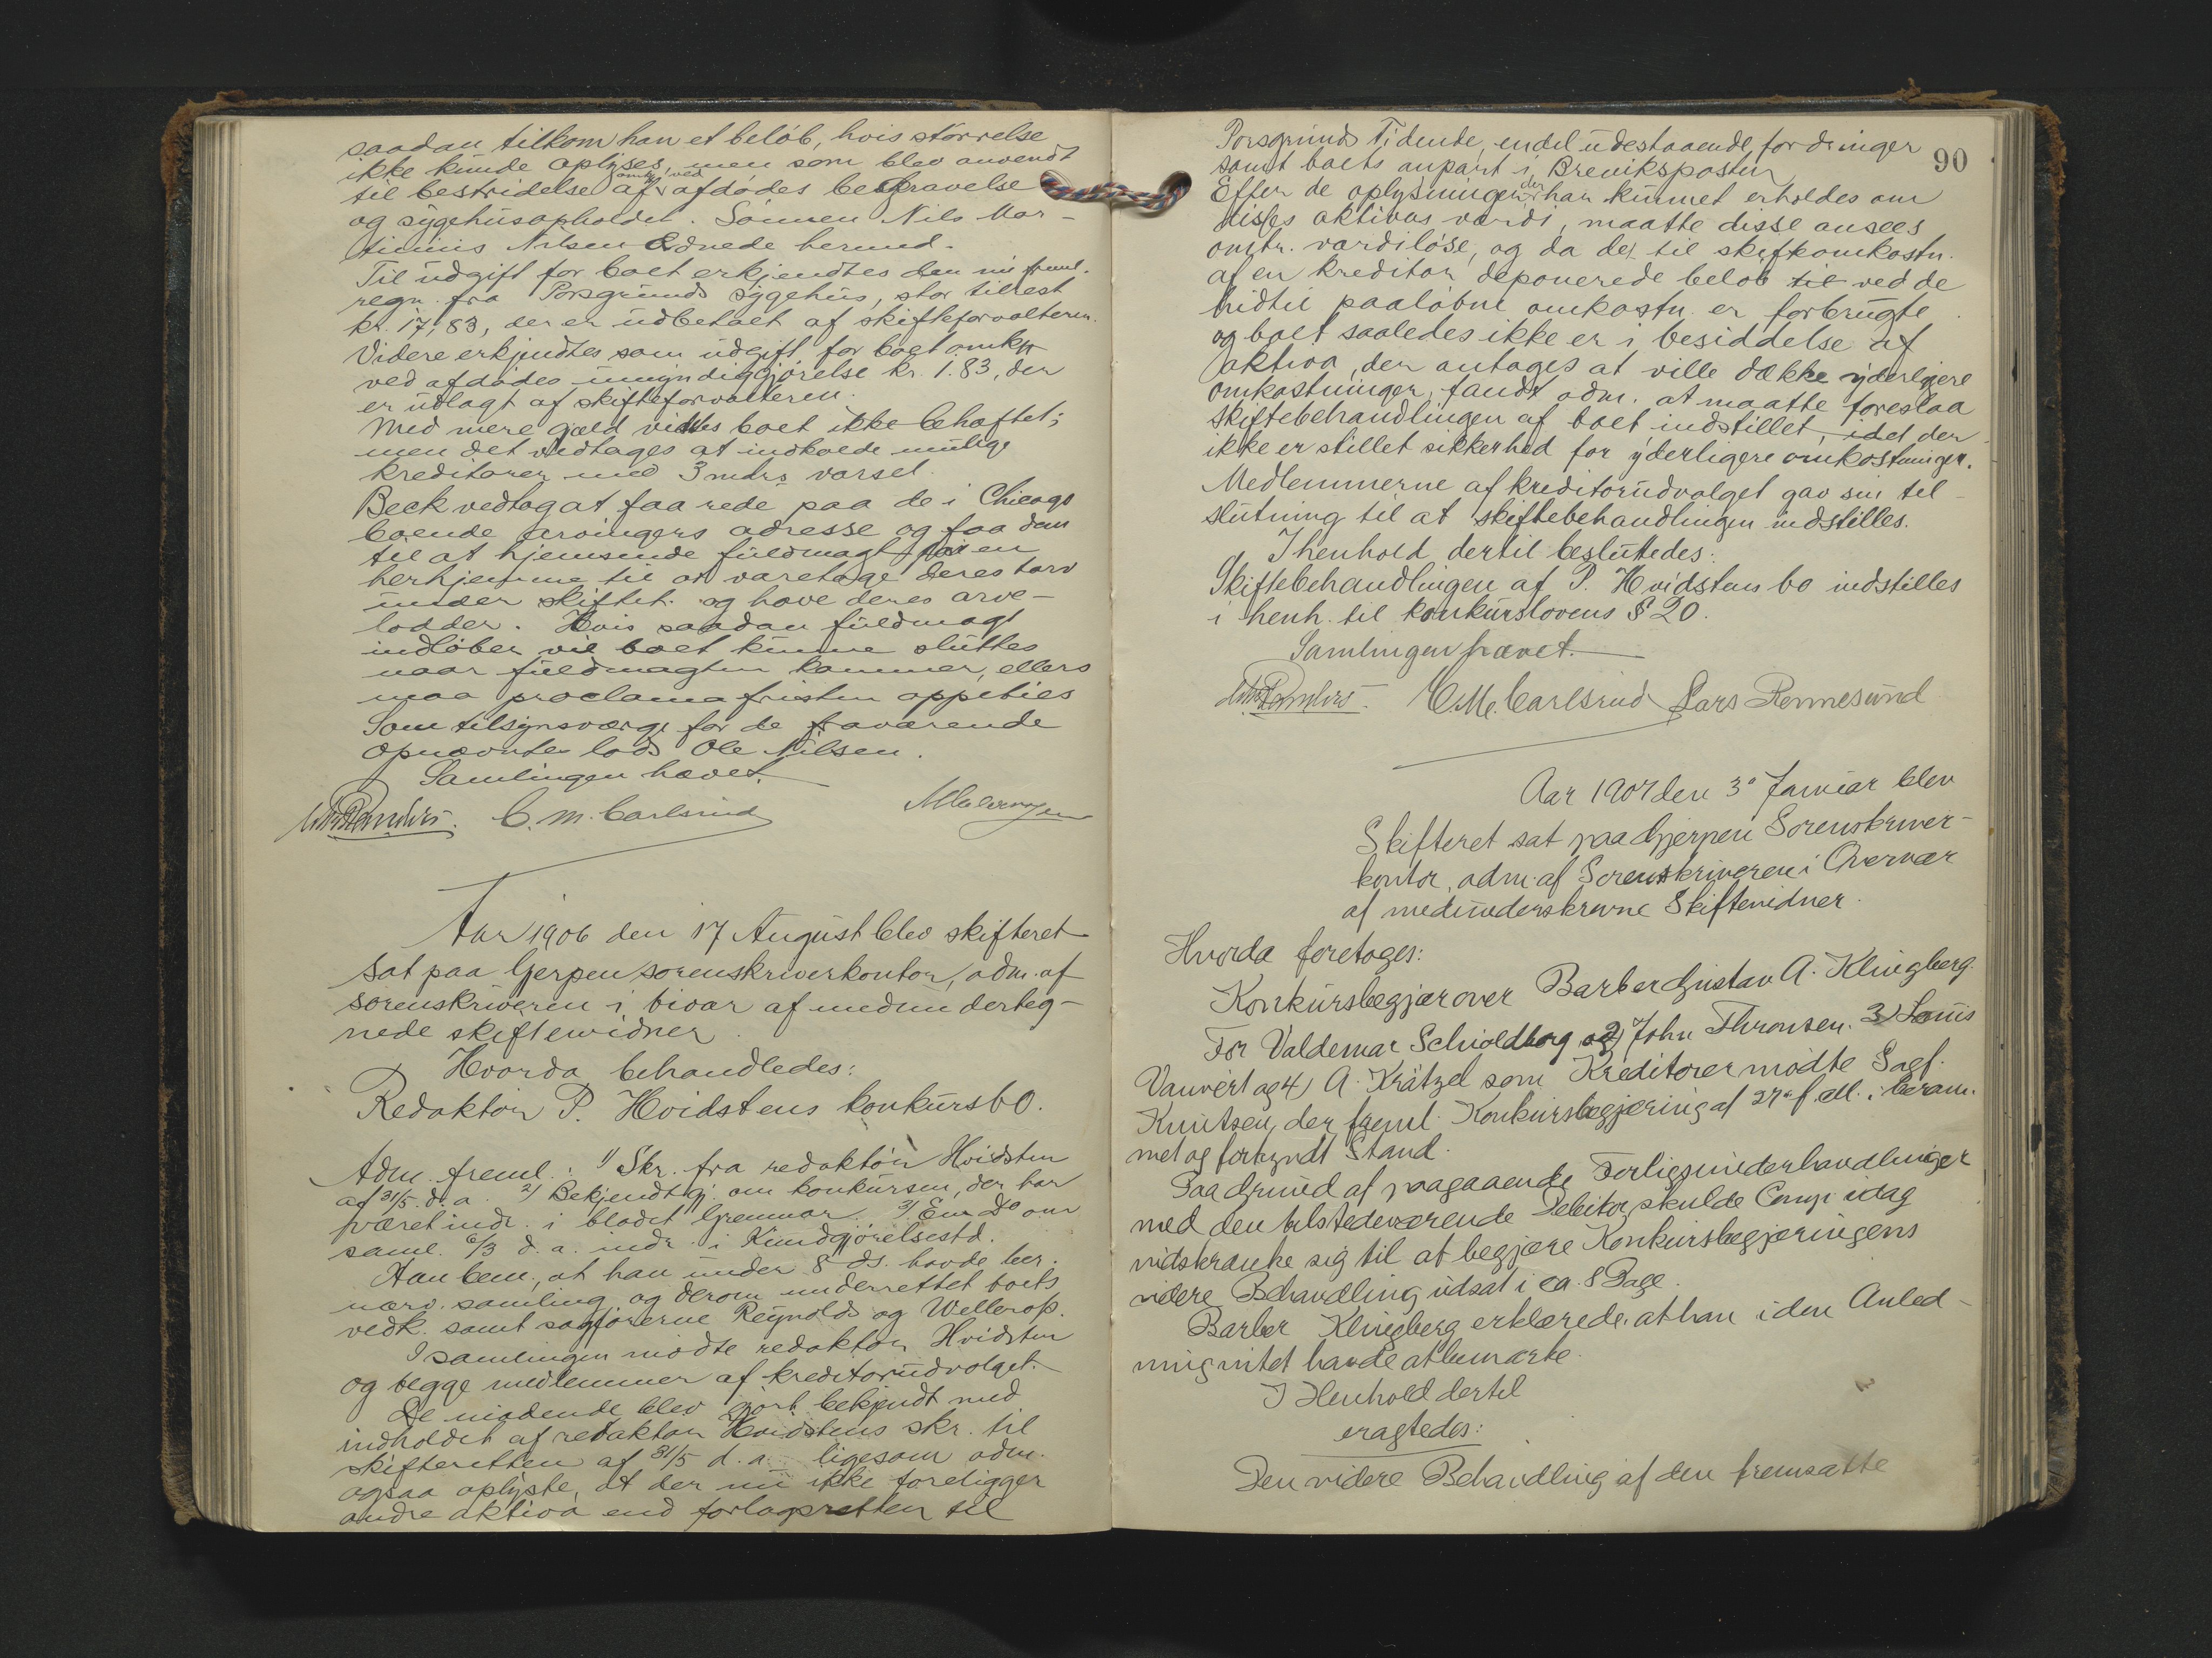 saadan tilkom han et beløb, hvis størrelse
ikke kunde oplyses, men som blev anvendt
til bestridelse af omk. ved afdødes begravelse
og sygehusopholdet. Sønnen Nils Mar-
tinius Nilsen ednede herved.
Til udgift for boet erkjendtes den nu freml.
regn. fra Porsgrunds sygehus, stor tilrest
kr. 17,83, der er udbetalt af skifteforvalteren.
Videre erkjendtes som udgift for boet omk.
ved afdødes umyndiggjørelse kr. 1.83, der
er udlagt af skifteforvalteren.
Med mere gjæld vides boet ikke behæftet;
men det vedtages at indkalde mulige
kreditorer med 3 mdrs varsel.
Beck vedtog at faa rede paa de i Chicago
boende arvingers adresse og faa dem
til at hjemsende fuldmagt for en
herhjemme til at varetage deres tarv
under skiftet og hæve deres arve-
lodder. Hvis saadan fuldmagt
indløber vil boet kunne sluttes
naar fuldmagten kommer, ellers
maa proclamafristen oppebies
Som tilsynsværge for de fraværende
opnævntes lods Ole Nilsen.
Samlingen hævet.
C. M. Carlsrud
Aar 1906 den 17 August blev skifteret
sat paa Gjerpen sorenskriverkontor, adm. af
sorenskriveren i bivær af medunderteg-
nede skiftevidner.
Hvorda behandledes:
Redaktør P. Hvidstens konkursbo.
Adm. freml.: 1) Skr. fra redaktør Hvidsten
af 31/5 d.a. 2) Bekjendtgj. om konkursen, der har
været indr. i bladet Grenmar 3) En Do om
saml. 6/3 d. a. indr. i Kundgjørelsestd.
Han bem., at han under 8 ds. havde ber.
nærv. samling og derom underrettet boets
vedk. samt sagførerne Reynolds og Wellerop.
I samlingen mødte redaktør Hvidsten
og begge medlemmer af kreditorudvalget.
De mødende blev gjort bekjendt med
indholdet af redaktør Hvidstens skr. til
skifteretten af 31/5 d. a. ligesom adm.
ogsaa oplyste, at der nu ikke foreligger
andre aktiva end forlagsretten til
90
Porsgrunds Tidende, endel udestaaende fordringer
samt boets anpart i Breviksposten
Efter de oplysninger der har kunnet erholdes om
disses aktivas værdi, maatte disse ansees
omtr. værdiløse, og da det til skifteomkostn.
af en kreditor deponerede beløb til ved de
hidtil paaløbne omkostn. er forbrugte
og boet saaledes ikke er i besiddelse af
aktiva, der antages at ville dække yderligere
omkostninger, fandt adm. at maatte foreslaa
skiftebehandlingen af boet indstillet, idet der
ikke er stillet sikkerhed for yderligere omkostninger.
Medlemmerne af kreditorudvalget gav sin til-
slutning til at skiftebehandlingen indstilles.
I henhold dertil besluttedes:
Skiftebehandlingen af P. Hvidstens bo indstilles
i henh. til konkurslovens § 20.
Samlingen hævet.
C. M. Carlsrud Lars Rønnesund
Aar 1907 den 3de Januar blev
Skifteret sat paa Gjerpen Sorenskriver-
kontor, adm. af Sorenskriveren i Overvær
af medunderskrevne Skiftevidner.
Hvorda foretoges:
Konkursbegjær over Barber Gustav A. Klingberg.
For Valdemar Schioldborg og 2) John Thronsen. 3) Louis
Vauvert og 4) A. Krätzel som Kreditorer mødte Sagf.
Knutsen, der freml. Konkursbegjæring af 27de f. M. i beram-
met og forkyndt Stand.
Paa Grund af paagaaende Forligsunderhandlinger
med den tilstedeværende Debitor skulde Comp. idag
indskrænke sig til at begjære Konkursbegjæringens
videre Behandling udsat i ca. 8 Dage.
Barber Klingberg erklærede, at han i den Anled-
ning intet havde at bemærke.
I Henhold dertil
eragtedes:
Den videre Behandling af den fremsatte